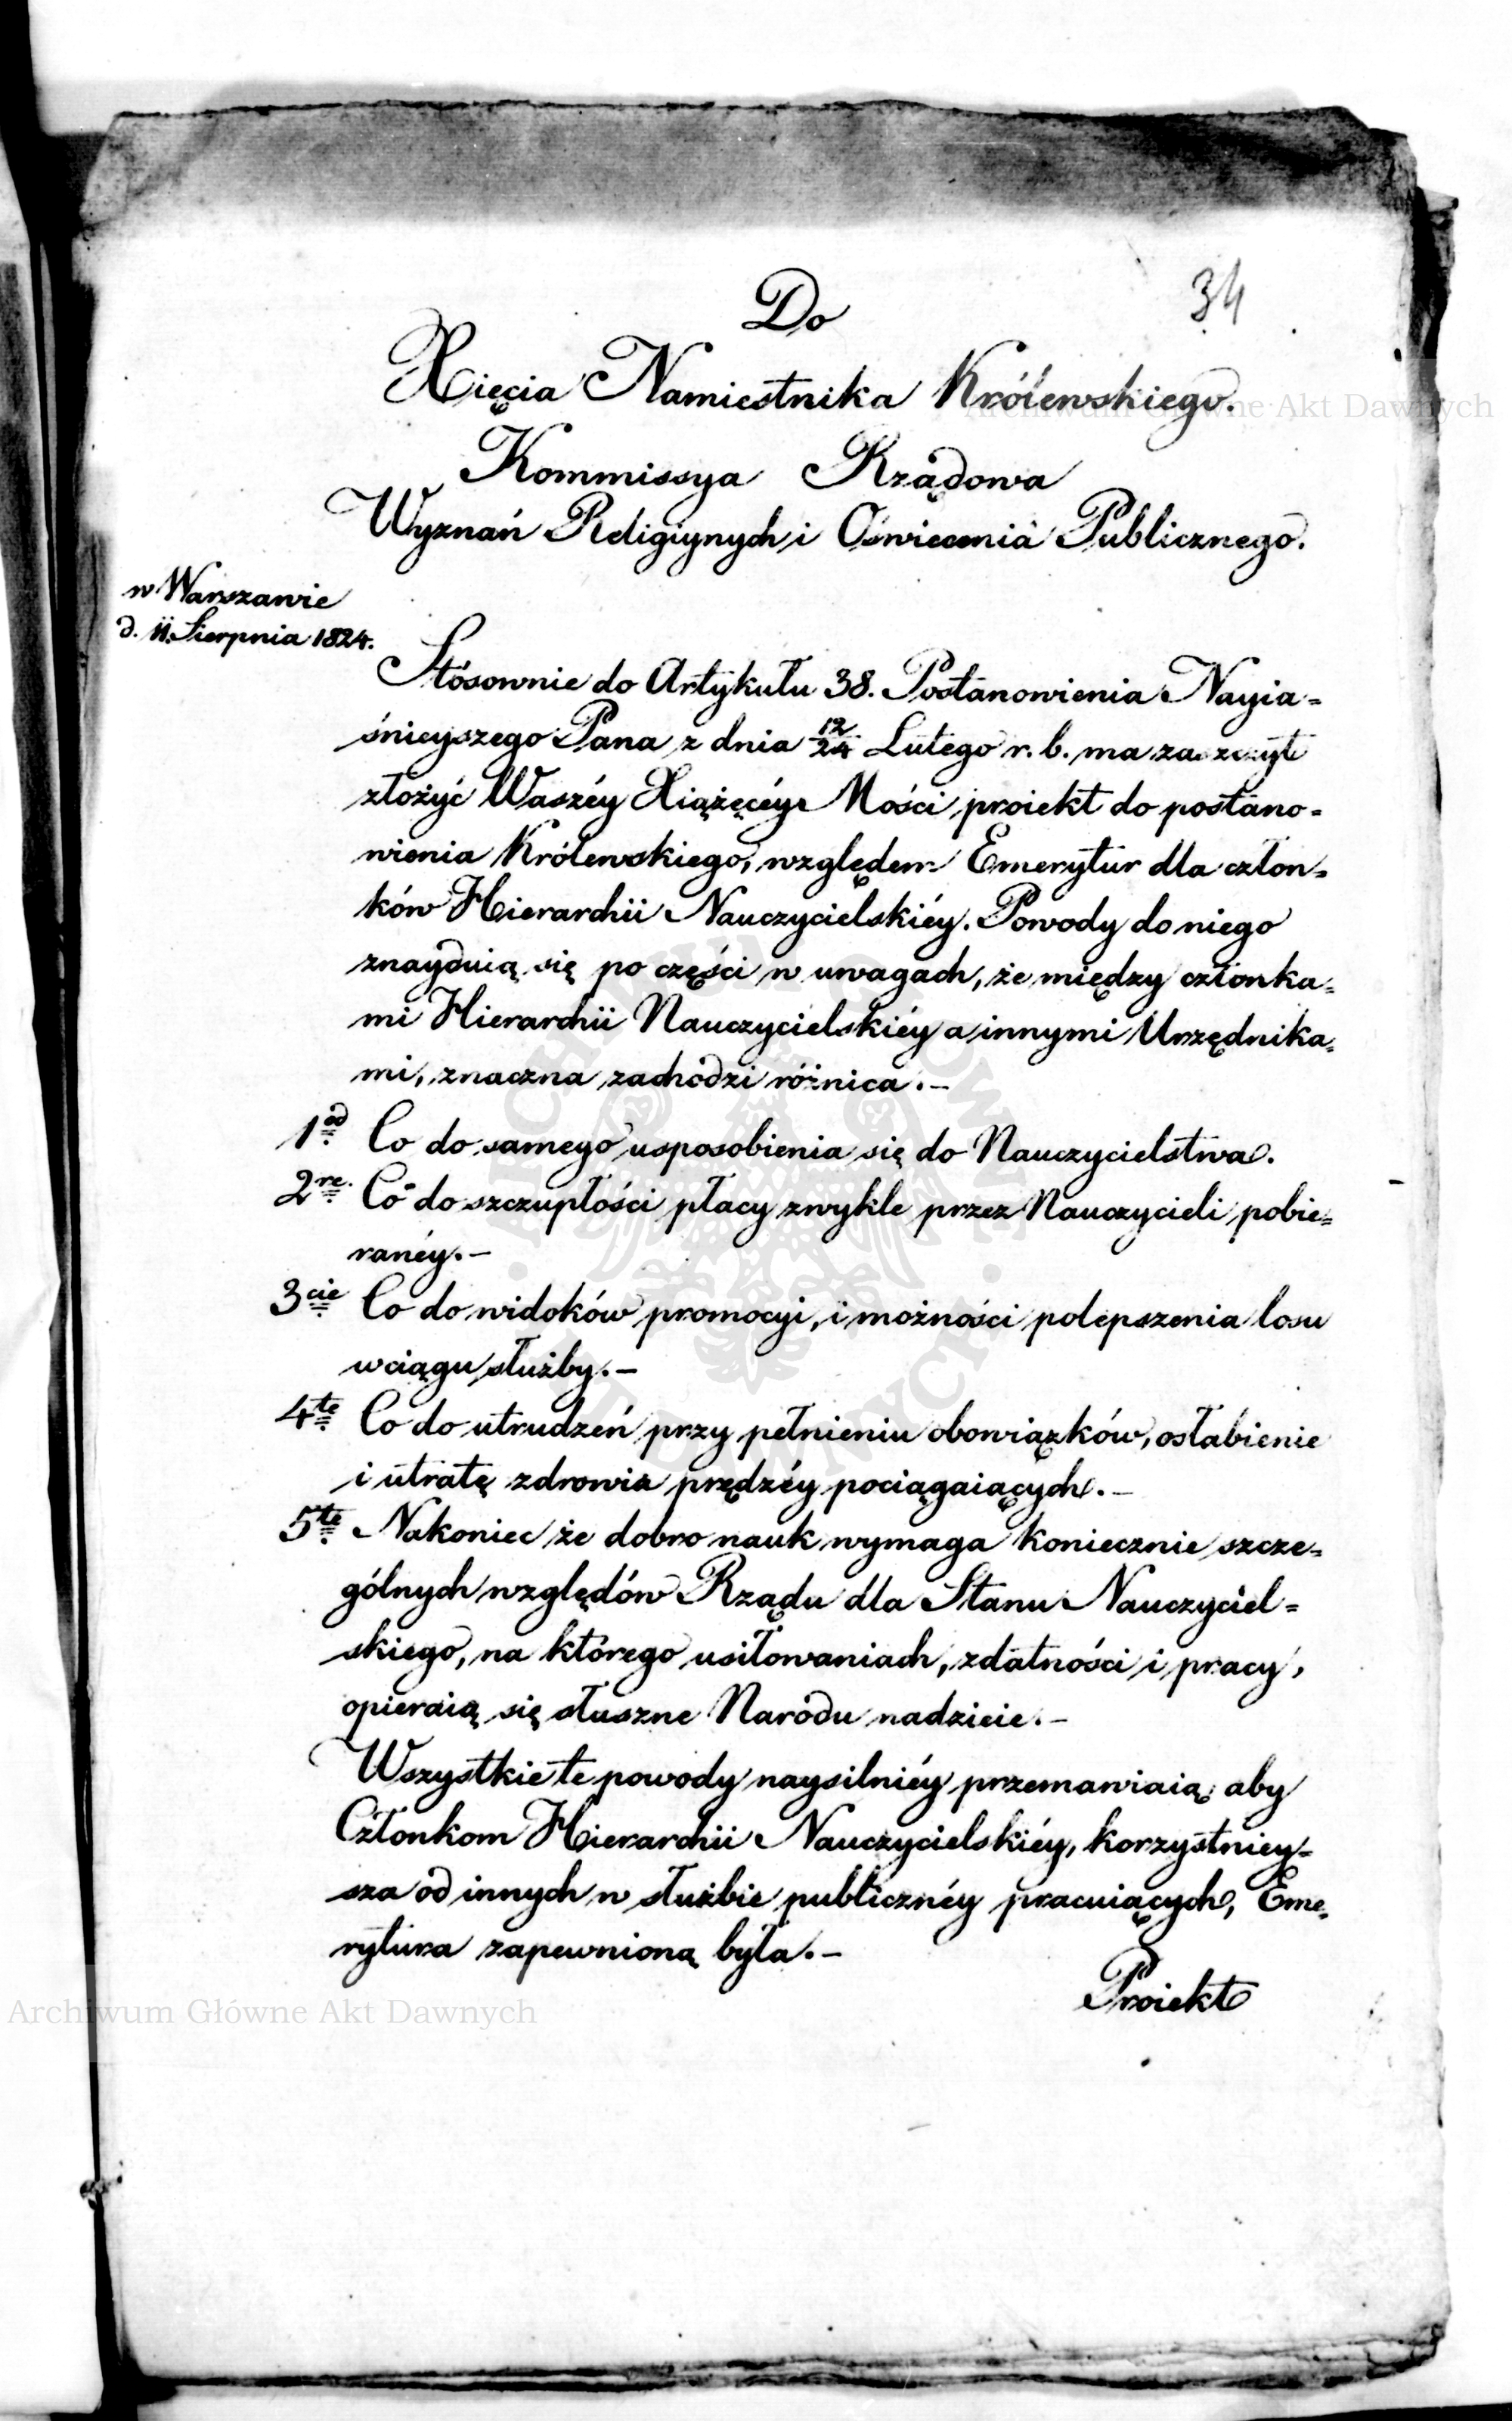 34
Do
Xięcia Namiestnika Królewskiego.
Kommissya Rządowa
Wyznań Religiynych i Oświecenia Publicznego.
w Warszawie
d. 11. Sierpnia 1824.
Stósownie do Artykułu 38. Postanowienia Nayia=
śnieyszego Pana z dnia 12/24 Lutego r. b. ma zaszczyt
złożyć Waszéy Xiążęcéy Mości proiekt do postano=
wienia Królewskiego, względem Emerytur dla człon=
ków Hierarchii Nauczycielskiéy. Powody do niego
znayduią się po części w uwagach, że między członka=
mi Hierarchii Nauczycielskiéy a innymi Urzędnika=
mi, znaczna zachodzi różnica.–
1od Co do samego usposobienia się do Nauczycielstwa.
2re. Co do szczupłości płacy zwykle przez Nauczycieli pobie=
ranéy.–
3cie Co do widoków promocyi, i możności polepszenia losu
w ciągu służby.–
4te Co do utrudzeń przy pełnieniu obowiązków, osłabienie
i utratę zdrowia prędzéy pociągaiących.–
5te Nakoniec że dobro nauk wymaga koniecznie szcze=
gólnych względów Rządu dla Stanu Nauczyciel=
skiego, na którego usiłowaniach, zdatności i pracy,
opieraią się słuszne Narodu nadzieie.–
Wszystkie te powody naysilniéy przemawiaią aby
Członkom Hierarchii Nauczycielskiéy, korzystniey=
sza od innych w służbie publicznéy pracuiących, Eme=
rytura zapewnioną była.–
Proiekt
Archiwum Główne Akt Dawnych
Archiwum Główne Akt Dawnych